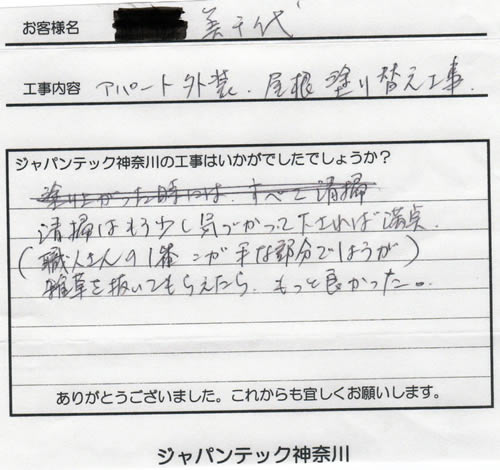 お客様名 美千代
工事内容 アパート外装、屋根塗り替え工事.
ジャパンテック神奈川の工事はいかがでしたでしょうか?
塗り上がった時には、すべて清掃
清掃はもう少し気づかって下されば満点.
(職人さんの1番ニが手な部分でしょうが)
雑草を抜いてもらえたら、もっと良かった。
ありがとうございました。これからも宜しくお願いします。
ジャパンテック神奈川